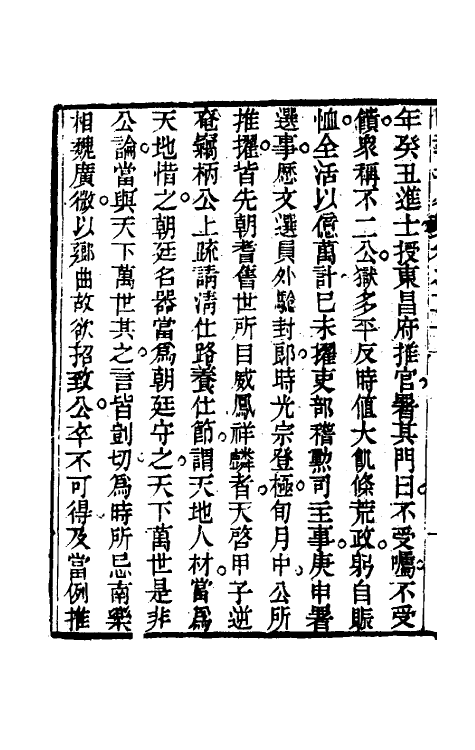 年癸丑進士授東昌府推官署其門曰不受囑不受
饋衆稱不二公獄多平反時値大飢條荒政躬自賑
恤全活以億萬計己未擢吏部稽勲司主事庚申署
選事歷文選員外驗封郎時光宗登極旬月中公所
推擢皆先朝耆舊世所目威鳳祥麟者天啓甲子逆
奄竊柄公上疏請淸仕路養仕節謂天地人材當爲
天地惜之朝廷名器當爲朝廷守之天下萬世是非
公論當與天下萬世其之言皆剴切爲時所忌南樂
相魏廣微以鄉曲故欲招致公卒不可得及當例推